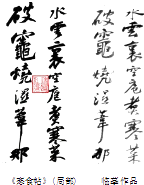 水雲裏空庖煮寒菜
破竈燒濕葦那
水雲裏空庖煮寒菜
破竈燒濕葦那
《寒食帖》(局部)
临摹作品